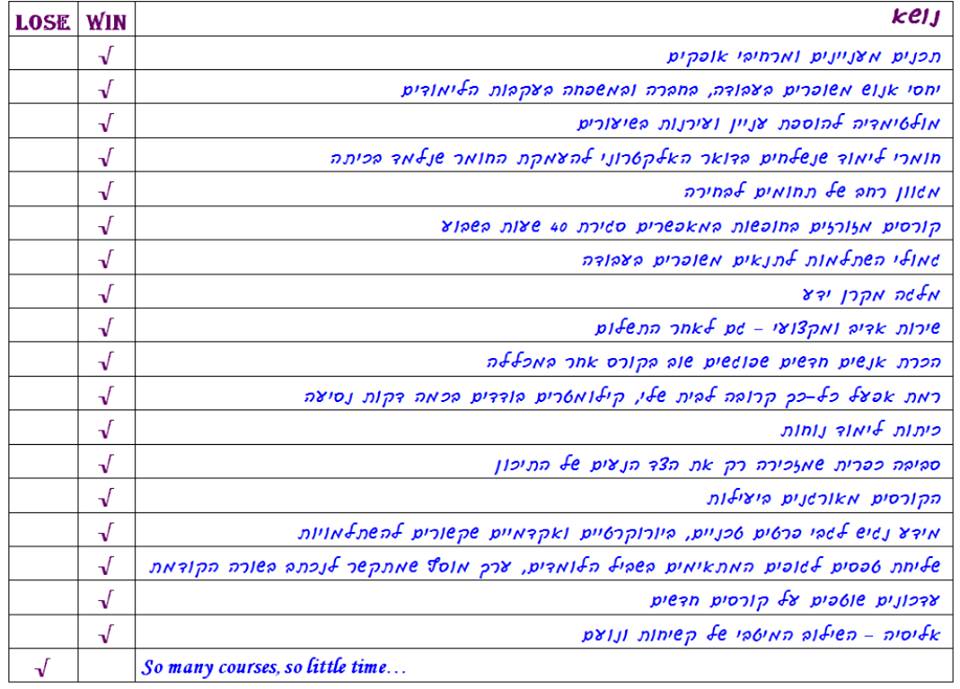 נושא WIN LOSE
תכנים מעניינים ומרחיבי אופקים √
יחסי אנוש משופרים בעבודה, בחברה ובמשפחה בעקבות הלימודים √
מולטימדיה להוספת עניין ועירנות בשיעורים √
חומרי לימוד שנשלחים בדואר האלקטרוני להעמקת החומר שנלמד בכיתה √
מגוון רחב של תחומים לבחירה √
קורסים מזורזים בחופשות במאפשרים סגירת 40 שעות בשבוע √
גמולי השתלמות לתנאים משופרים בעבודה √
מלגה מקרן ידע √
שירות אדיב ומקצועי – גם לאחר התשלום √
הכרת אנשים חדשים שפוגשים שוב בקורס אחר במכללה √
רמת אפעל כל-כך קרובה לבית שלי, קילומטרים בודדים בכמה דקות נסיעה √
כיתות לימוד נוחות √
סביבה כפרית שמזכירה רק את הצד הנעים של התיכון √
הקורסים מאורגנים ביעילות √
מידע נגיש לגבי פרטים טכניים, ביורוקרטיים ואקדמיים שקשורים להשתלמויות √
שליחת טפסים לגופים המתאימים בשביל הלומדים, ערך מוסף שמתקשר לנכתב בשורה הקודמת √
עדכונים שוטפים על קורסים חדשים √
אליסיה – השילוב המיטבי של קשיחות ונועם √
√ So many courses, so little time…